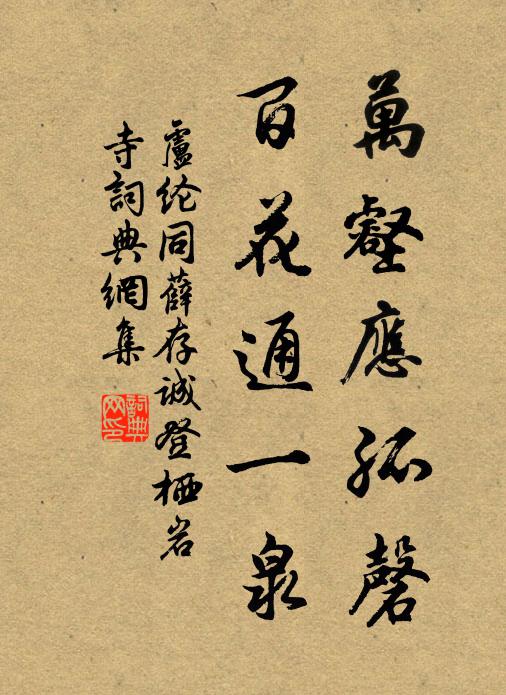 萬壑應孤磬
百花通一泉
盧纶同薛存誠登栖岩
寺詞典網集
詞典网印